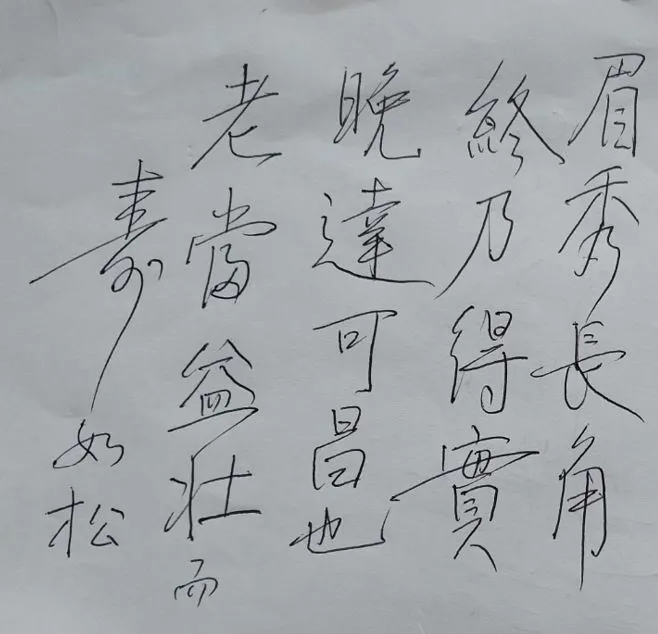 眉秀長角
終乃得實
晚達可昌也
老當益壯而
壽如松